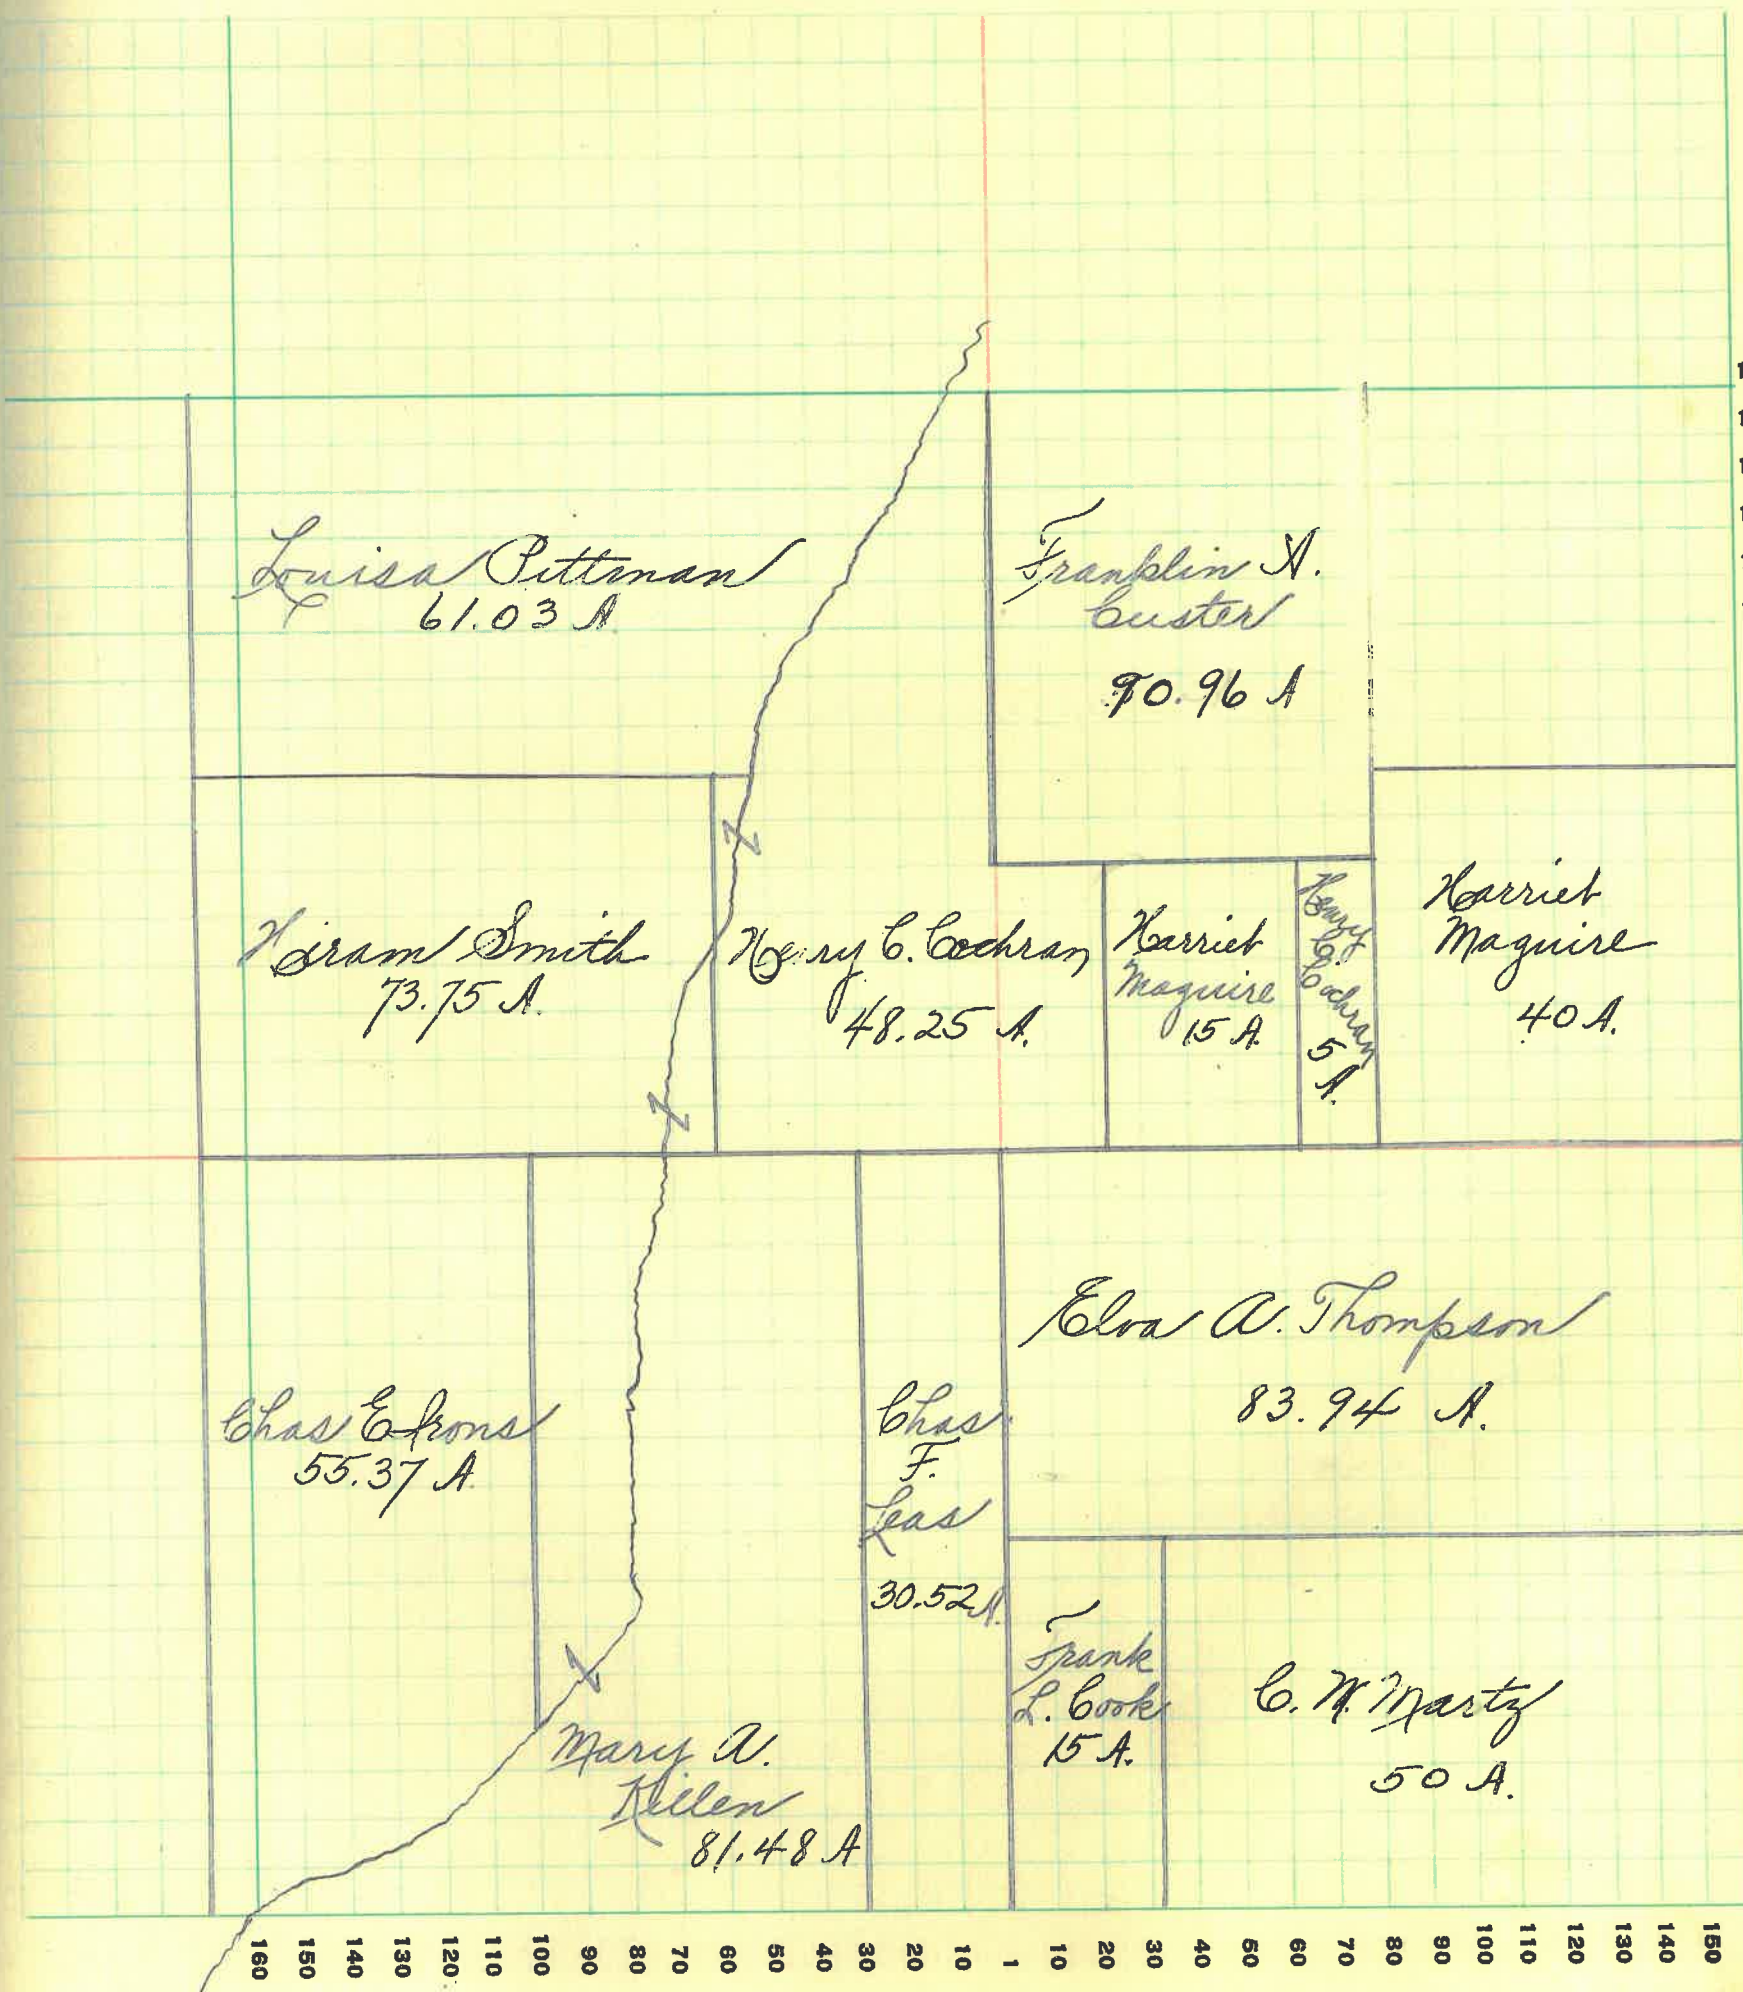 Louisa Pittman
61.03 A
Franklin A.
Custer
90.96 A
Hiram Smith
73.75 A.
Henry C. Cochran
48.25 A.
Harriet
Maguire
15 A.
Henry
C.
Cochran
5
A.
Harriet
Maguire
40 A.
Chas E Irons
55.37 A
Mary A.
Killen
81.48 A
Chas
F.
Leas
30.52 A.
Elva A. Thompson
83.94 A.
Frank
L. Cook
15 A.
C. W. Martz
50 A.
160 150 140 130 120 110 100 90 80 70 60 50 40 30 20 10 1 10 20 30 40 50 60 70 80 90 100 110 120 130 140 150